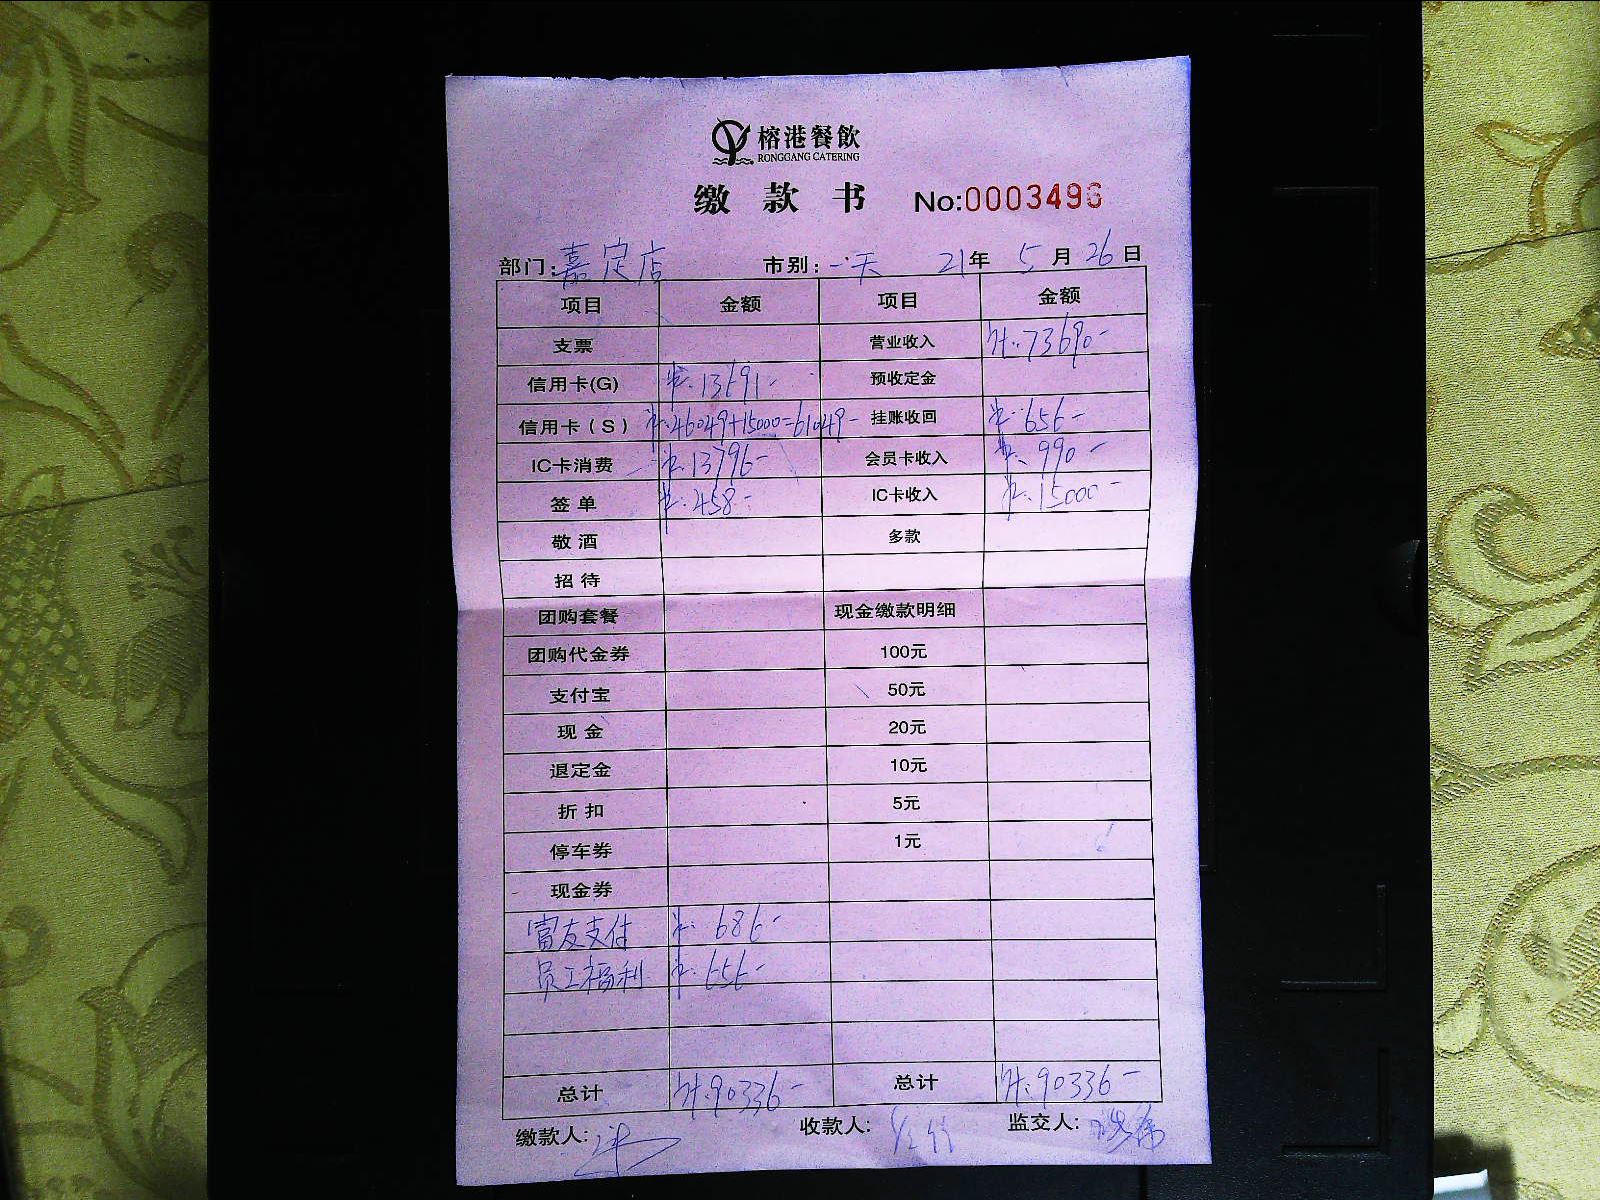 榕港餐飲
RONGGANG CATERING
缴款书 No:0003496
部门:嘉定店 市别:一天 21年 5月 26日
项目 金额 项目 金额
支票 营业收入 ¥:73690-
信用卡(G) ¥:13691- 预收定金
信用卡(S) ¥:46049+15000=61049- 挂账收回 ¥:656-
IC卡消费 ¥:13796- 会员卡收入 ¥:990-
签单 ¥:458- IC卡收入 ¥:15000-
敬酒 多款
招待
团购套餐 现金缴款明细
团购代金券 100元
支付宝 50元
现金 20元
退定金 10元
折扣 5元
停车券 1元
现金券
富友支付 ¥:686-
员工福利 ¥:656-
总计 ¥:90336- 总计 ¥:90336-
缴款人: 收款人: 监交人: